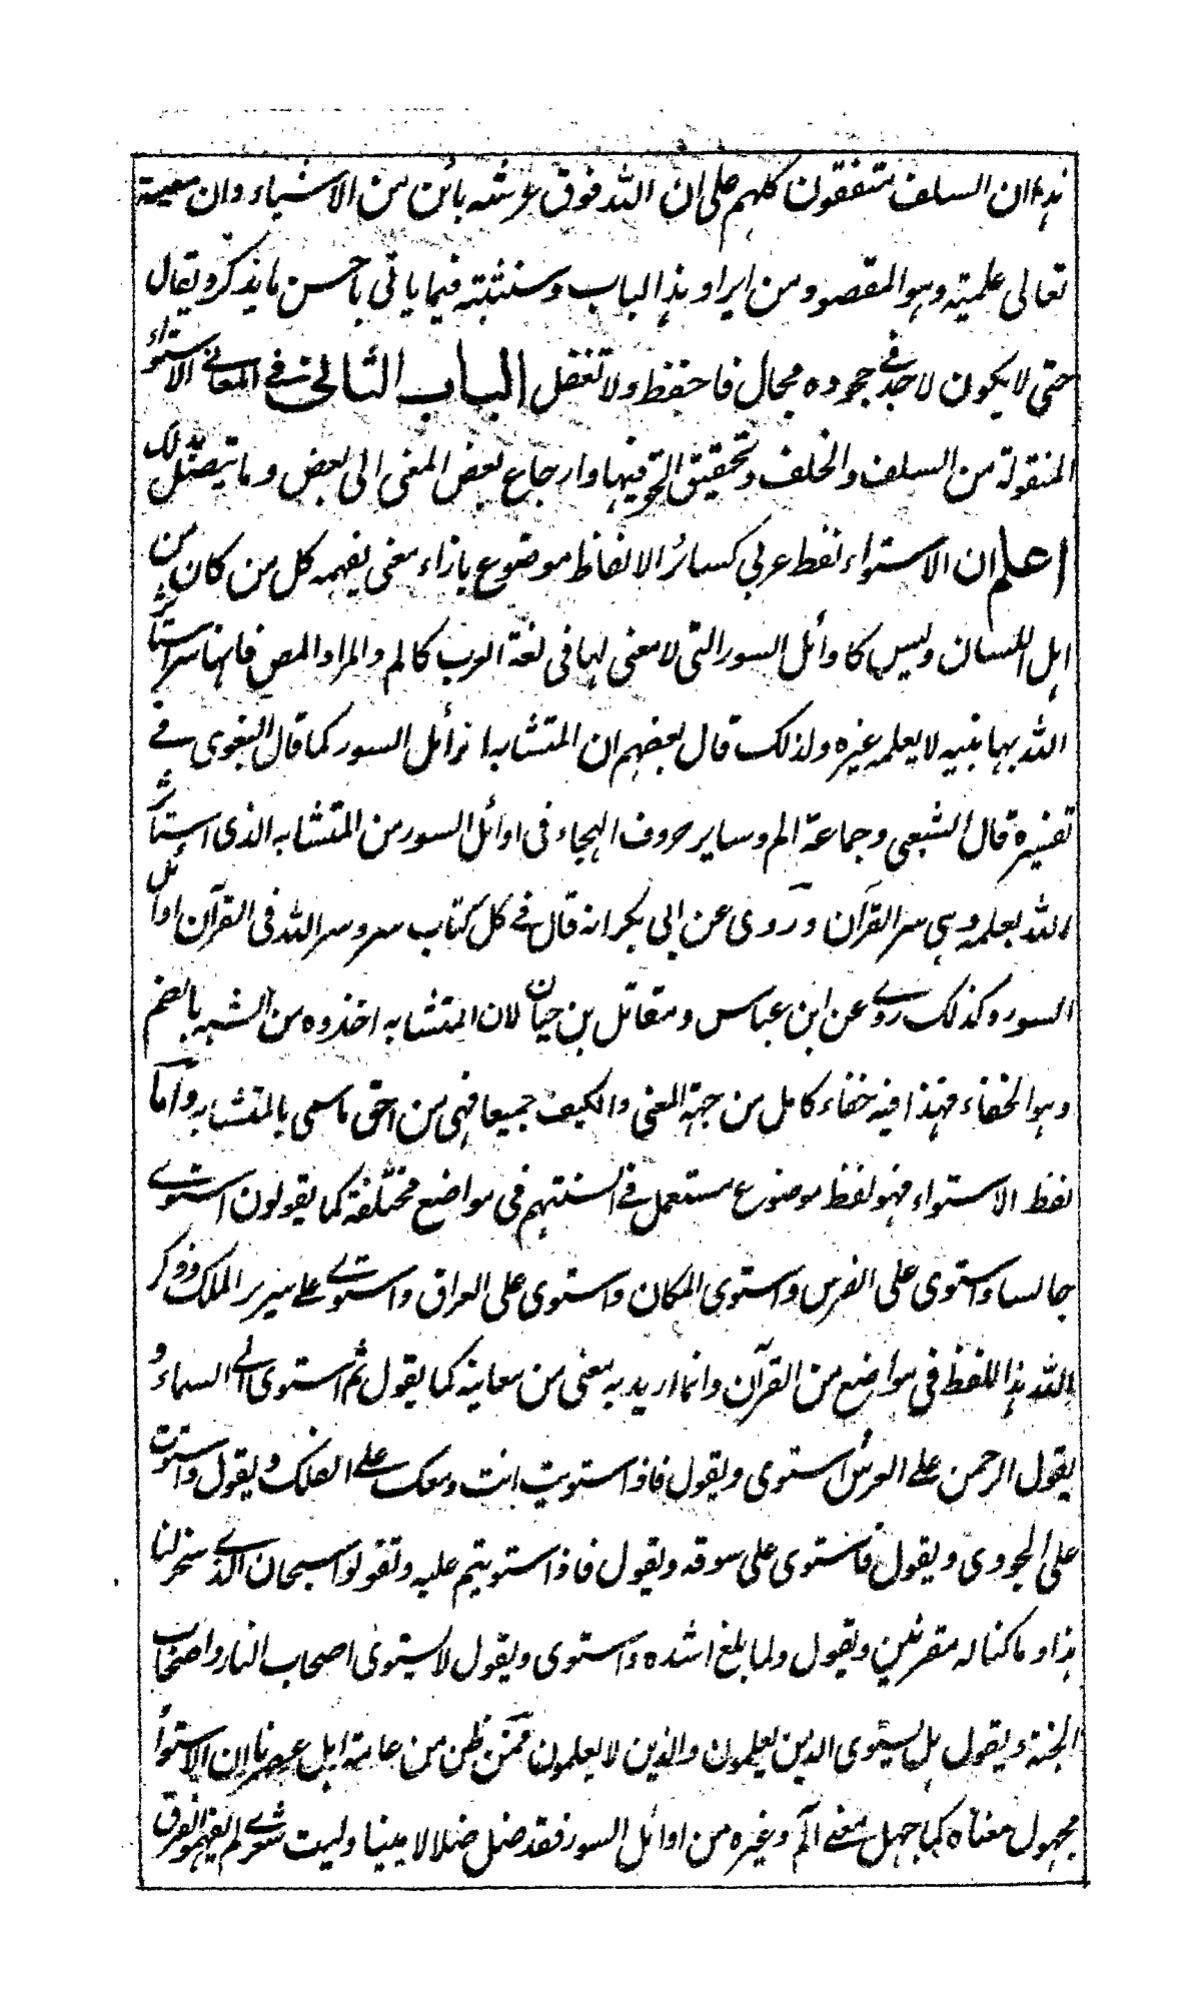 هذا ان السلف متفقون كلهم على ان الله فوق عرشه بائن من الاشياء وان معية
تعالى علمية وهو المقصود من ايراد هذا الباب وسنثبته فيما ياتي باحسن ما يذكر ويقال
حتى لا يكون لاحد في جحوده مجال فاحفظ ولا تغفل الباب الثاني في المعاني الاستواء
المنقولة من السلف والخلف وتحقيق الحق فيها وارجاع بعض المعنى الى بعض وما يتصل بذلك
اعلم ان الاستواء لفظ عربي كسائر الالفاظ موضوع بازاء معنى يفهمه كل من كان من
اهل اللسان وليس كاوائل السور التي لا معنى لها في لغة العرب كالم والمر والمص فانها سر استاثر
الله بها نبيه لا يعلمه غيره ولذلك قال بعضهم ان المتشابه اوائل السور كما قال البغوي في
تفسيره قال الشعبي وجماعة الم وساير حروف الهجاء في اوائل السور من المتشابه الذي استاثر
الله بعلمه وهي سر القرآن وروى عن ابي بكر انه قال في كل كتاب سر وسر الله في القرآن اوائل
السور وكذلك روي عن ابن عباس ومقاتل بن حيان لان المتشابه اخذوه من الشبه بالضم
وهو الخفاء فهذا فيه خفاء كامل من جهة المعنى والكيف جميعا فهي من احق ما سمى بالمتشابه واما
لفظ الاستواء فهو لفظ موضوع مستعمل في السنتهم في مواضع مختلفة كما يقولون استوى
جالسا واستوى على الفرس واستوى المكان واستوى على العراق واستوى على سرير الملك وذكر
الله هذا اللفظ في مواضع من القرآن وانما اريد به معنى من معانيه كما يقول ثم استوى الى السماء و
يقول الرحمن على العرش استوى ويقول فاذا استويت انت ومعك على الفلك ويقول واستوت
على الجودى ويقول فاستوى على سوقه ويقول فاذا استويتم عليه وتقولوا سبحان الذي سخر لنا
هذا وما كنا له مقرنين ويقول ولما بلغ اشده واستوى ويقول لا يستوى اصحاب النار واصحاب
الجنة ويقول هل يستوى الذين يعلمون والذين لا يعلمون فمن ظن من عامة اهل عصرنا ان الاستواء
مجهول معناه كما جهل معنى الم وغيره من اوائل السور فقد ضل ضلالا مبينا وليت شعري لم يفهموا الفرق